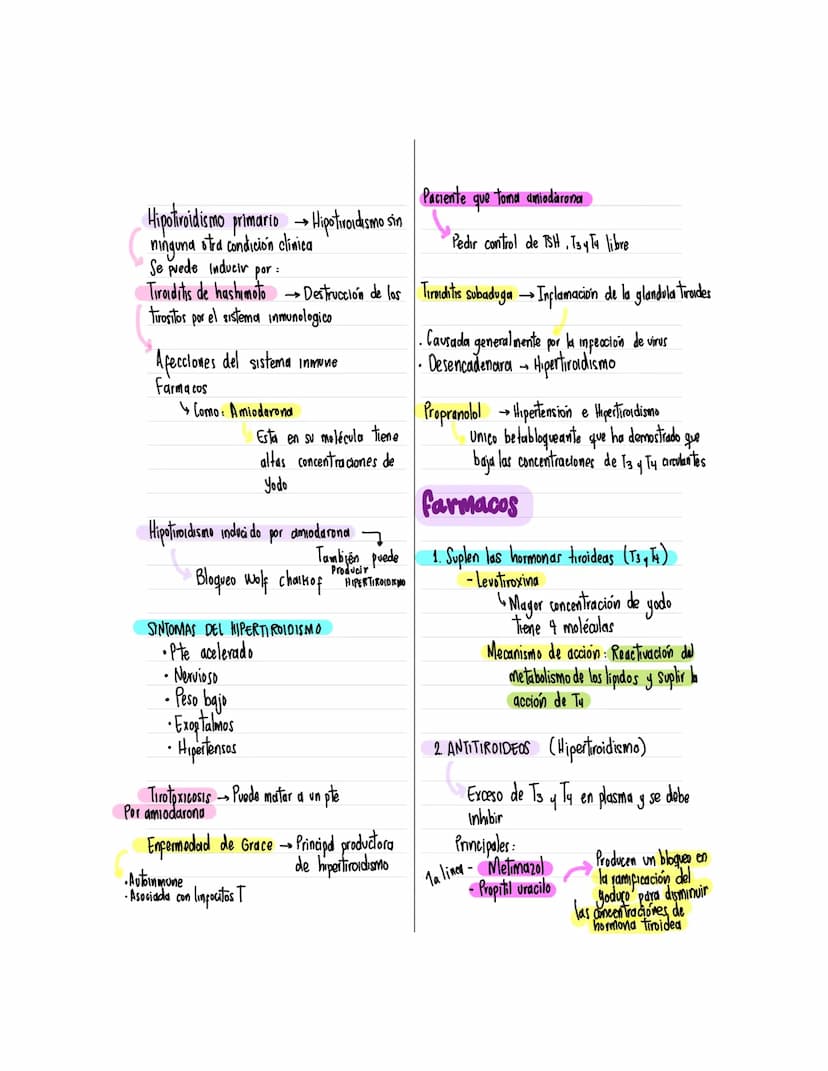 Hipotiroidismo primario → Hipotiroidismo sin
ninguna otra condición clinica
Se puede inducir por :
Tiroiditis de hashimoto → Destrucción de los
tirositos por el sistema inmunologico
Afecciones del sistema inmune
Farmacos
↳ Como: Amiodarona
Esta en su molécula tiene
altas concentraciones de
yodo
Hipotiroidismo inducido por amiodarona
También puede
Producir
HIPERTIROIDISMO
Bloqueo Wolf chaikof
SINTOMAS DEL HIPERTIROIDISMO
• Pte acelerado
• Nervioso
• Peso bajo
• Exoftalmos
• Hipertensos
Tirotoxicosis → Puede matar a un pte
Por amiodarona
Enfermedad de Grace → Principal productora
de hipertiroidismo
• Autoinmune
• Asociada con linfocitos T
Paciente que toma amiodarona
Pedir control de TSH, T3 y T4 libre
Tiroiditis subaduga → Inflamación de la glandula tiroides
• Causada generalmente por la infección de virus
• Desencadenara → Hipertiroidismo
Propranolol → Hipertensión e Hipertiroidismo
Unico betabloqueante que ha demostrado que
baja las concentraciones de T3 y T4 circulantes
farmacos
1. Suplen las hormonas tiroideas (T3 y T4)
- Levotiroxina
↳ Mayor concentración de yodo
tiene 4 moléculas
Mecanismo de acción: Reactivación del
metabolismo de los lipidos y suplir la
acción de T4
2 ANTITIROIDEOS (Hipertiroidismo)
Exceso de T3 y T4 en plasma y se debe
inhibir
Principales:
1a linea - Metimazol
- Propitil uracilo
Producen un bloqueo en
la ramificación del
yoduro para disminuir
las concentraciones de
hormona tiroidea